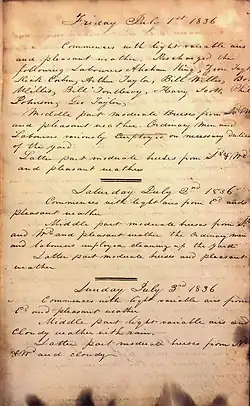 Friday July 1st 1836
Commences with light variable airs
and pleasant weather, Discharged the
following Labourers Abraham King,
Rick Cohn, Arthr Taylor, Bill Willis,
Willis, Bill Southroy, Harry Scott, Phil
Johnson, Geo Taylor,
Middle part moderate breeses from
and pleasant weather, Ordinary men and
Labourers variously Employed on necessary duties
of the yard
Latter part moderate breeses from
and pleasant weather
Saturday July 2nd 1836
Commences with light airs from Ed and
pleasant weather
Middle part moderate breeses from
and Wd and pleasant weather the Ordinary men
and labourers employed cleaning up the yard
Latter part moderate breeses and pleasant
weather
Sunday July 3rd 1836
Commences with light variable airs from
Ed and pleasant weather
Middle part light variable airs and
Cloudy weather with rain,
Latter part moderate breeses from N
& Wd and cloudy